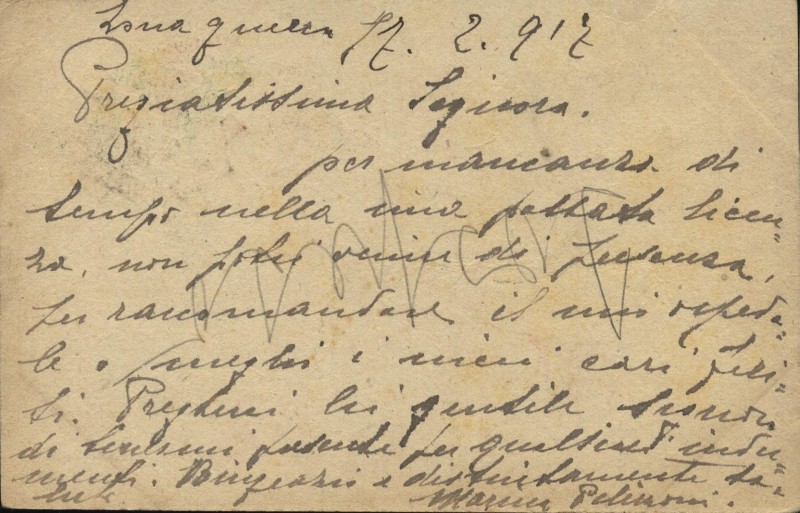 Zona guerra 17. 2. 917
Pregiatissima Signora.
per mancanza di
tempo nella mia passata licen-
za, non potei venire di presenza,
per racomandare il mio ospeda-
le o meglio i miei cari feri-
ti. Pregherei lei gentile Signora
di tenermi presente per qualsiasi indu-
menti. Ringrazio e distintamente sa-
luto